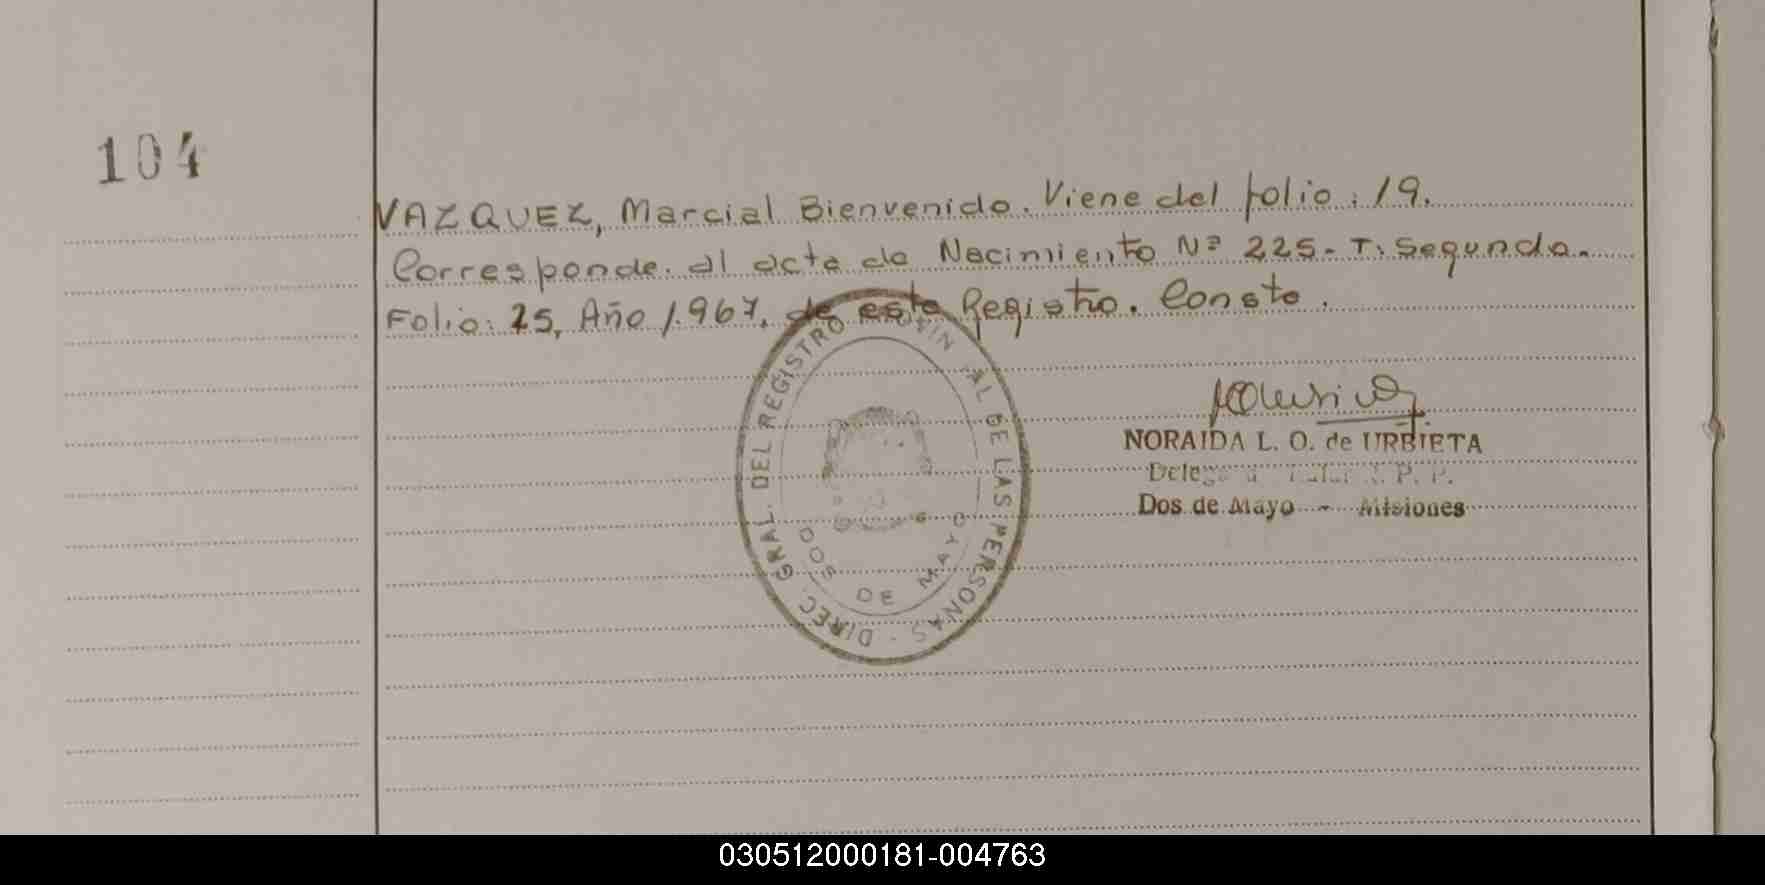 104
VAZQUEZ, Marcial Bienvenido. Viene del folio: 19.
Corresponde. al acta de Nacimiento Nº 225.- T. Segundo.
Folio: 25, Año 1.967, de este Registro. Conste.
DIREC. GRAL. DEL REGISTRO PROVINCIAL DE LAS PERSONAS -
DOS DE MAYO
NORAIDA L. O. de URBIETA
Dos de Mayo - Misiones
030512000181-004763